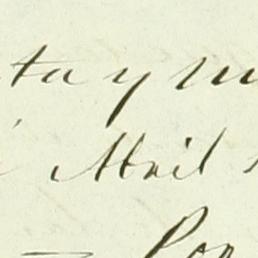 ta y m
Abril
Por